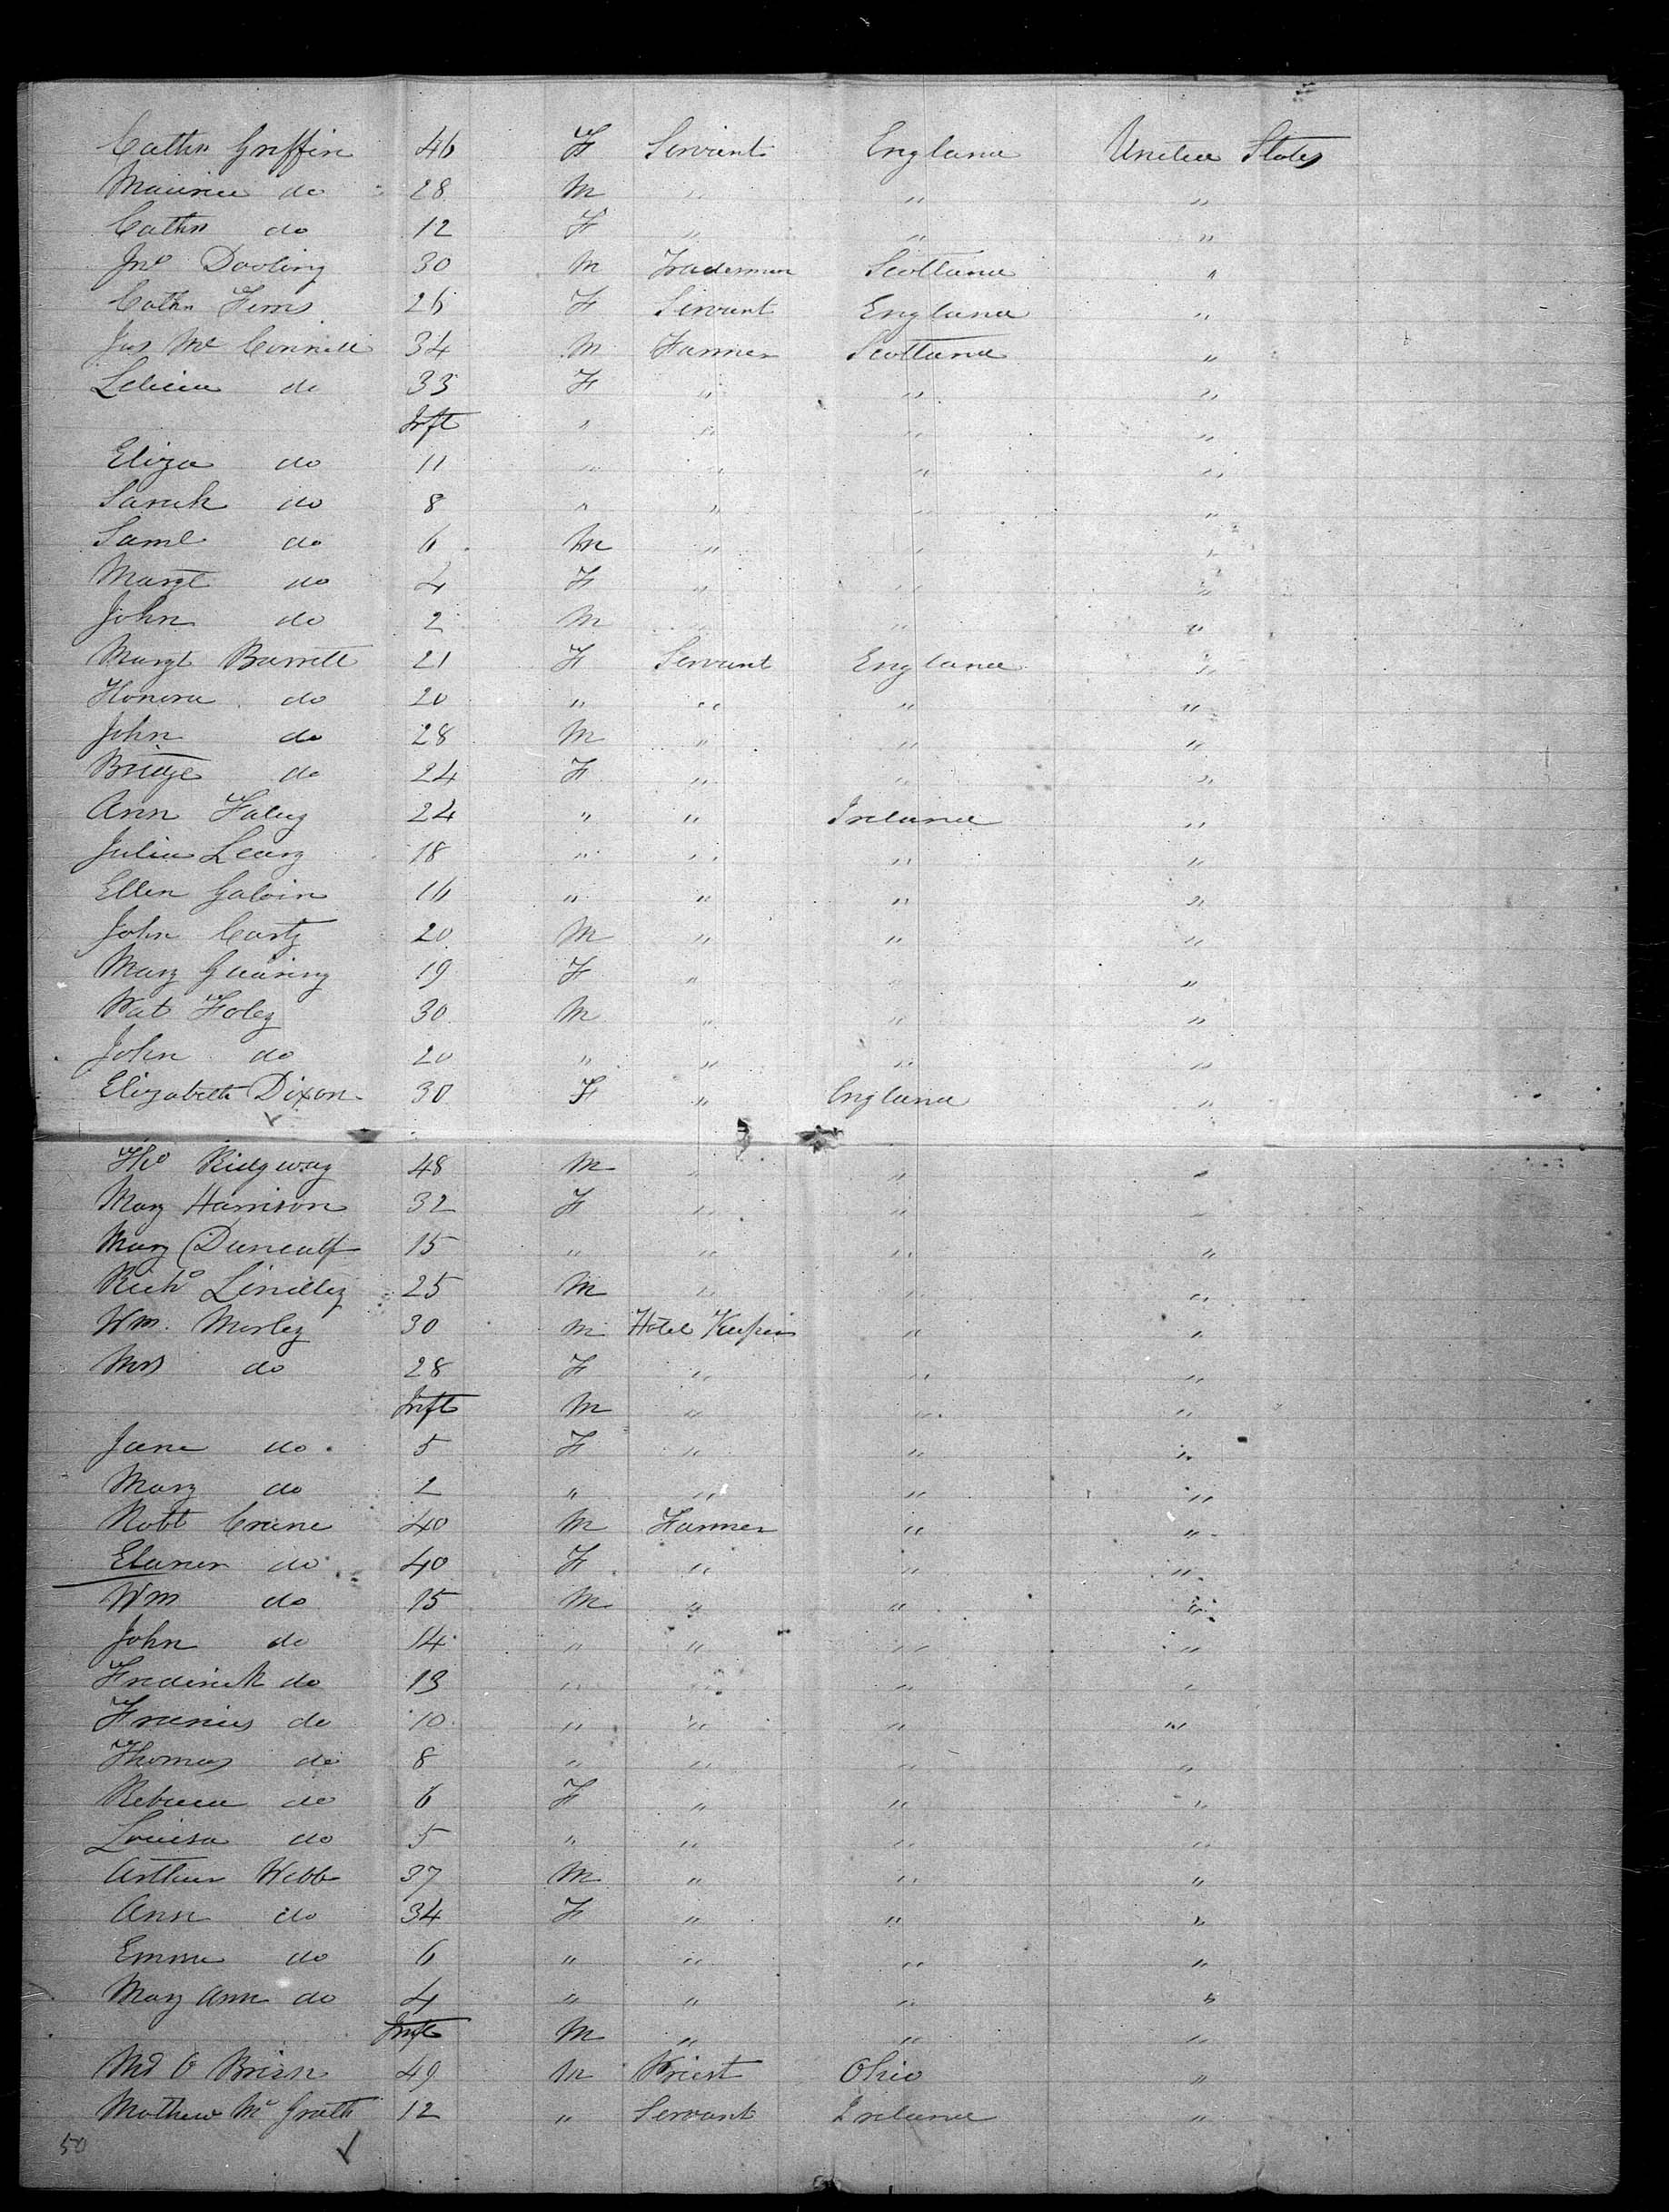 Cathn Griffin 46 F Servant England United States
Maurice do 28 M " " "
Cathn do 12 F " " "
Jno Dooling 30 M Tradesman Scotland "
Cathn 26 F Servant England "
Jas Mc Connell 34 M Farmer Scotland "
Leticia do 33 F " " "
Inft " " " "
Eliza do 11 " " " "
Sarah do 8 " " " "
Saml do 6 M " " "
Margt do 4 F " " "
John do 2 M " " "
Margt Barrett 21 F Servant England "
Honora do 20 " " " "
John do 28 M " " "
Bridgt do 24 F " " "
Ann Foley 24 " " Ireland "
Julia Leary 18 " " " "
Ellen Galvin 16 " " " "
John Carty 20 M " " "
Mary 19 F " " "
Pat Foley 30 M " " "
John do 20 " " " "
Elizabeth Dixon 30 F " England "
Tho Ridgway 48 M " " "
Mary Harrison 32 F " " "
Mary Duncalf 15 " " " "
Richd Lindley 25 M " " "
Wm. Morley 30 M Hotel Keeper " "
Mrs do 28 F " " "
Inft M " " "
Jane do 5 F " " "
Mary do 2 " " " "
Robt Crane 40 M Farmer " "
Elanor do 40 F " " "
Wm do 15 M " " "
John do 14 " " " "
Frederick do 13 " " " "
Francis do 10 " " " "
Thomas do 8 " " " "
Rebecca do 6 F " " "
Louisa do 5 " " " "
Arthur Webb 37 M " " "
Ann do 34 F " " "
Emma do 6 " " " "
Mary Ann do 4 " " " "
Inft M " " "
Md O Brien 49 M Priest Ohio "
Mathew Mc Grath 12 " Servant Ireland "
50